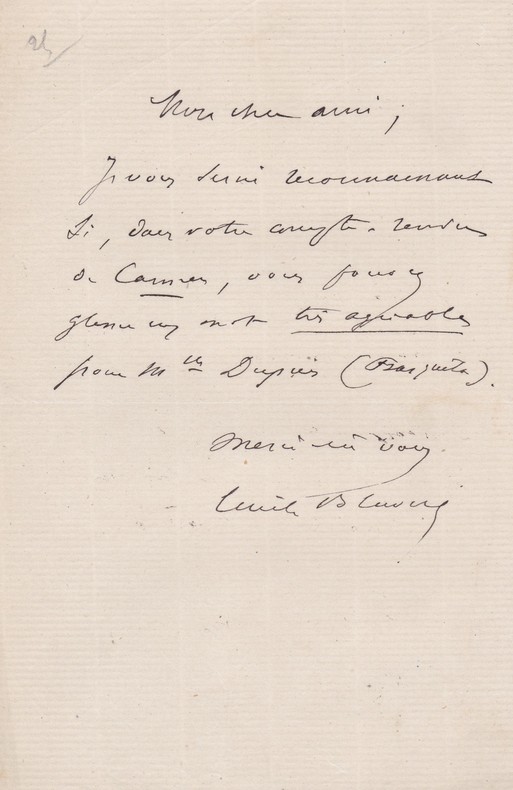 Mon cher ami,
Je vous serai reconnaissant
si, dans votre compte-rendu
de Carmen, vous pouvez
glisser un mot très agréable
pour Mlle Dupuis (Frasquita).
Merci à vous
Emile Blavet